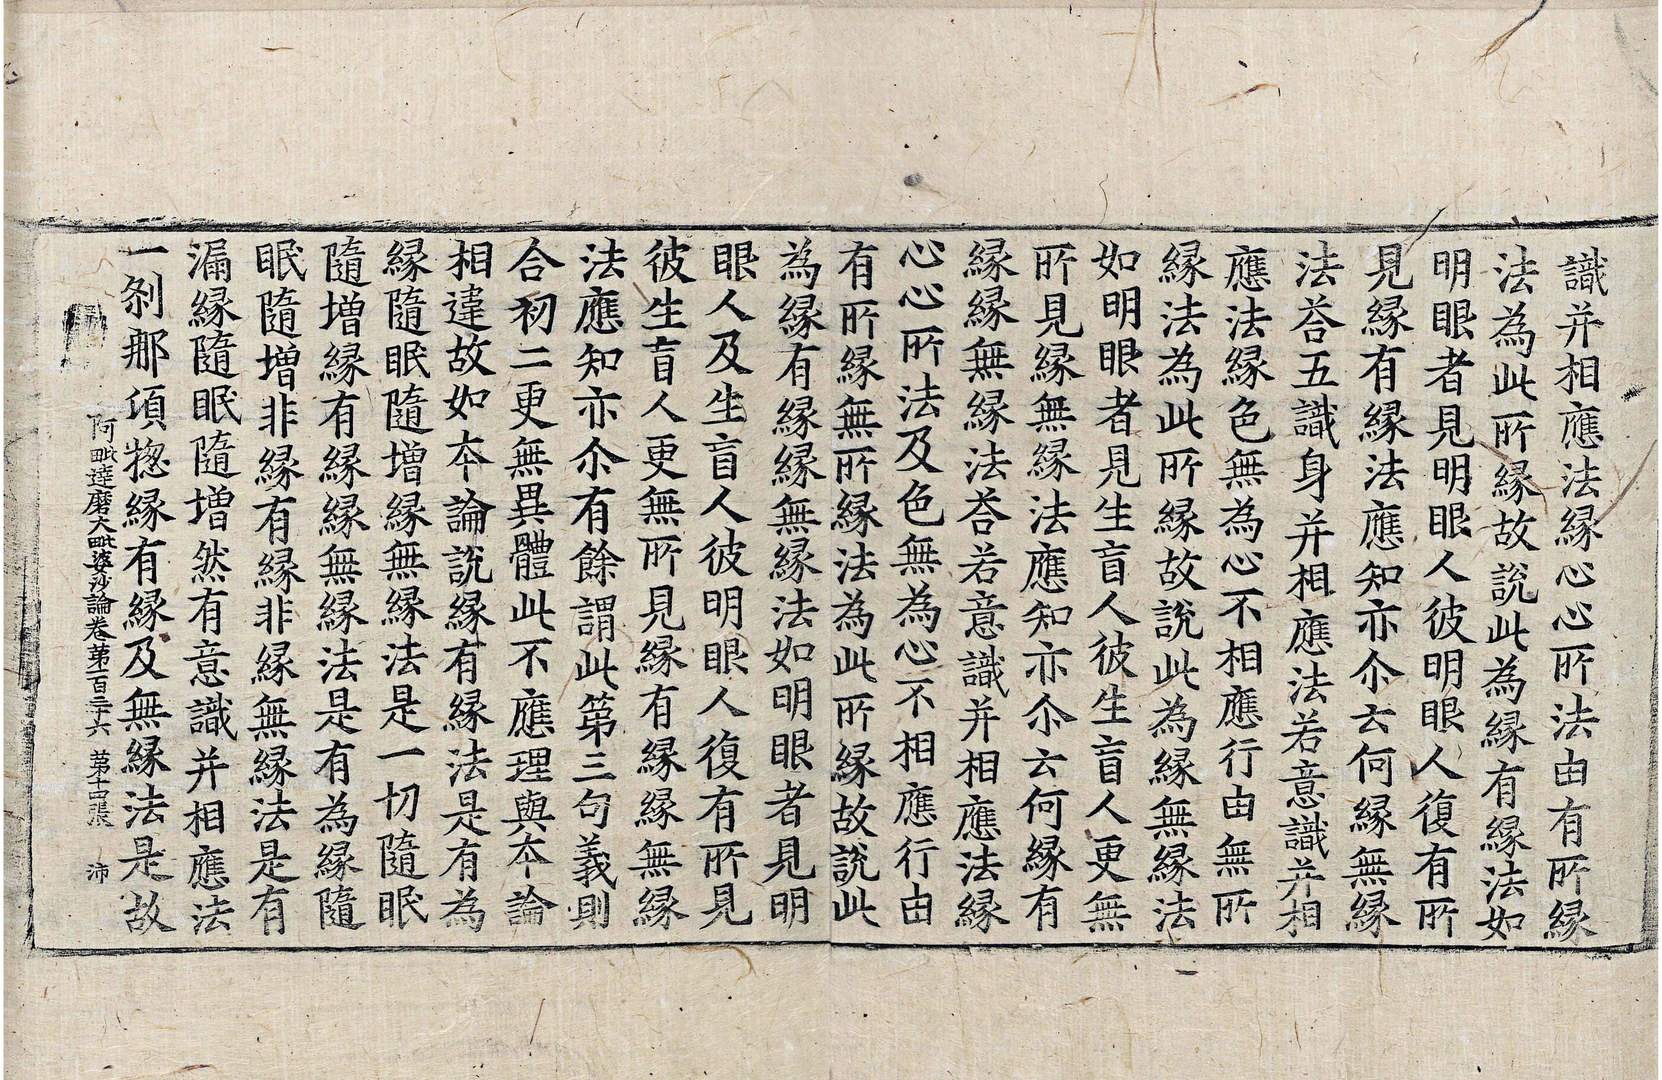 識并相應法縁心心所法由有所縁
法為此所縁故說此為縁有縁法如
明眼者見明眼人彼明眼人復有所
見縁有縁法應知亦尒云何縁無縁
法荅五識身并相應法若意識并相
應法縁色無為心不相應行由無所
縁法為此所縁故說此為縁無縁法
如明眼者見生盲人彼生盲人更無
所見縁無縁法應知亦尒云何縁有
縁縁無縁法荅若意識并相應法縁
心心所法及色無為心不相應行由
有所縁無所縁法為此所縁故說此
為縁有縁縁無縁法如明眼者見明
眼人及生盲人彼明眼人復有所見
彼生盲人更無所見縁有縁縁無縁
法應知亦尒有餘謂此第三句義則
合初二更無異體此不應理與本論
相違故如本論說縁有縁法是有為
縁隨眠隨增縁無縁法是一切隨眠
隨增縁有縁縁無縁法是有為縁隨
眠隨增非縁有縁非縁無縁法是有
漏縁隨眠隨增然有意識并相應法
一剎那頃惣縁有縁及無縁法是故
阿毗達磨大毗婆沙論卷第一百三十六 第十古張 沛